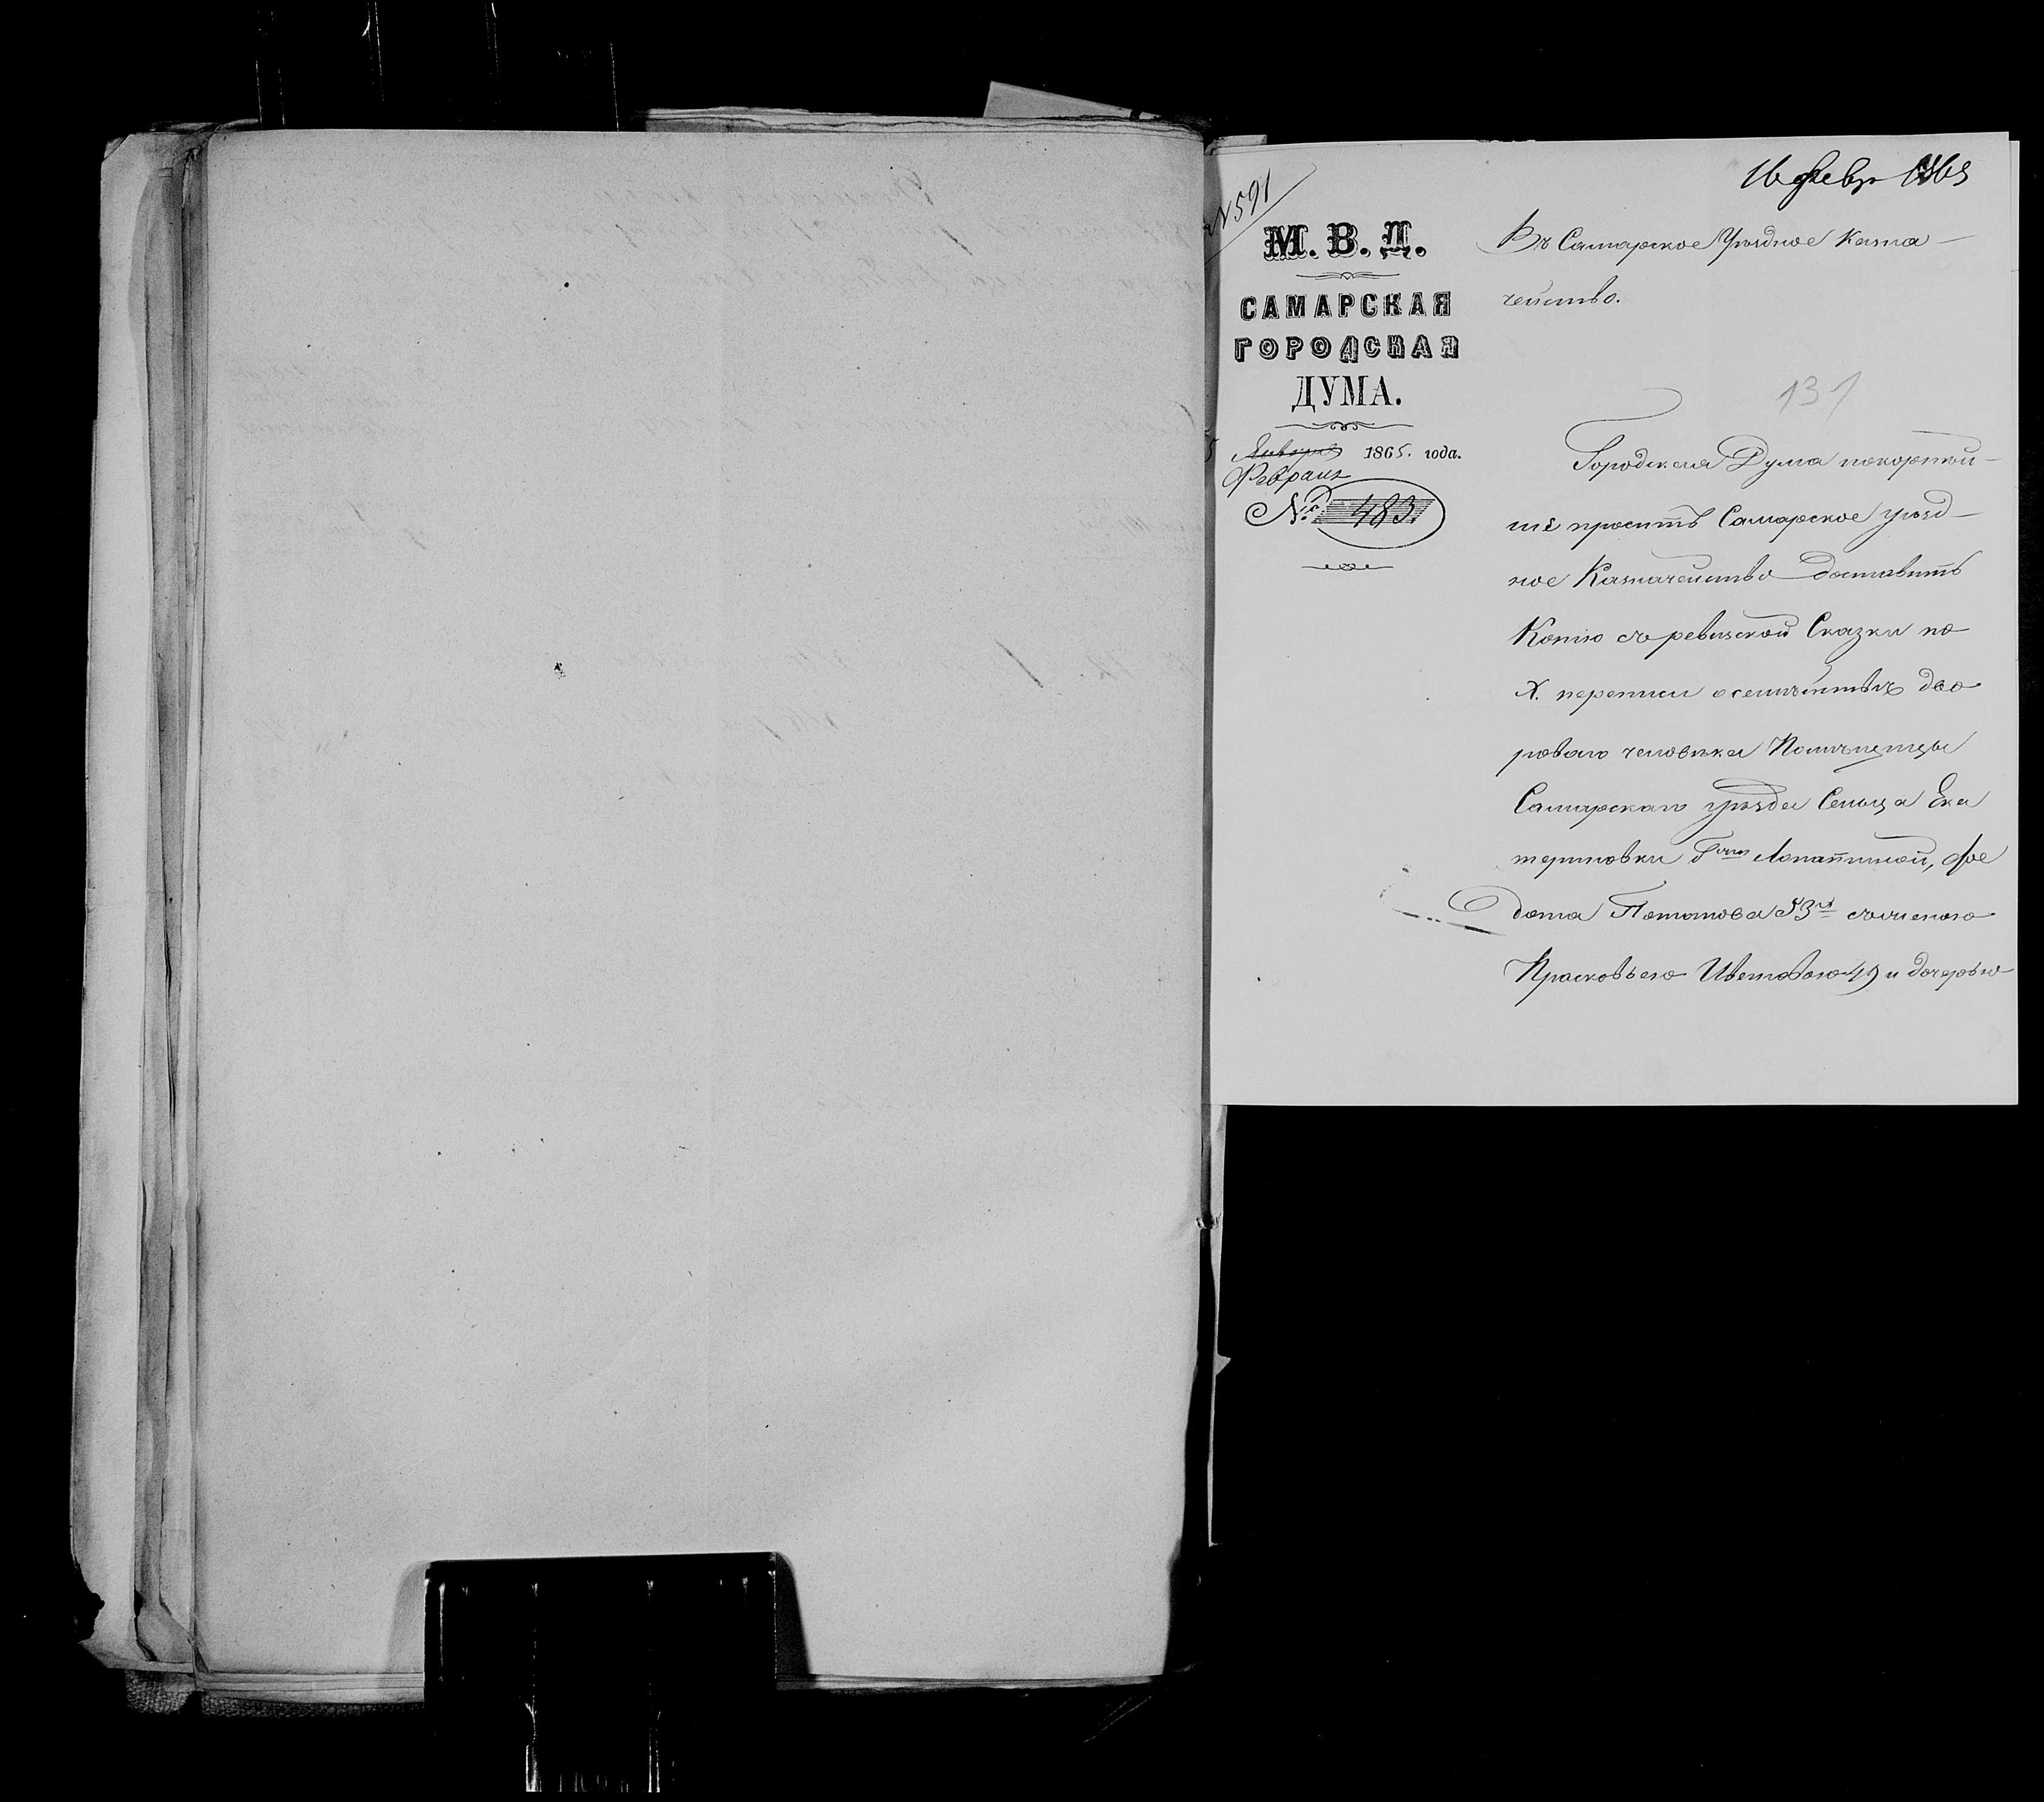 16 Февр 1865
N 591
М. В. Д.
САМАРСКАЯ
ГОРОДСКАЯ
ДУМА.
Января 1865. года.
Февраля
№ 483.
Въ Самарское Уѣздное Казна-
чейство.
131
Городская Дума покорнѣй-
ше проситъ Самарское уѣзд-
ное Казначейство доставить
Копію съ ревизской Сказки по
X. переписи о семѣйствѣ дво
роваго человѣка Помѣщицы
Самарскаго уѣзда Сельца Ека
териновки Г-жи Лопатиной, Фе
дота Потапова 53 съ женою
Прасковьею 49 и дочерью